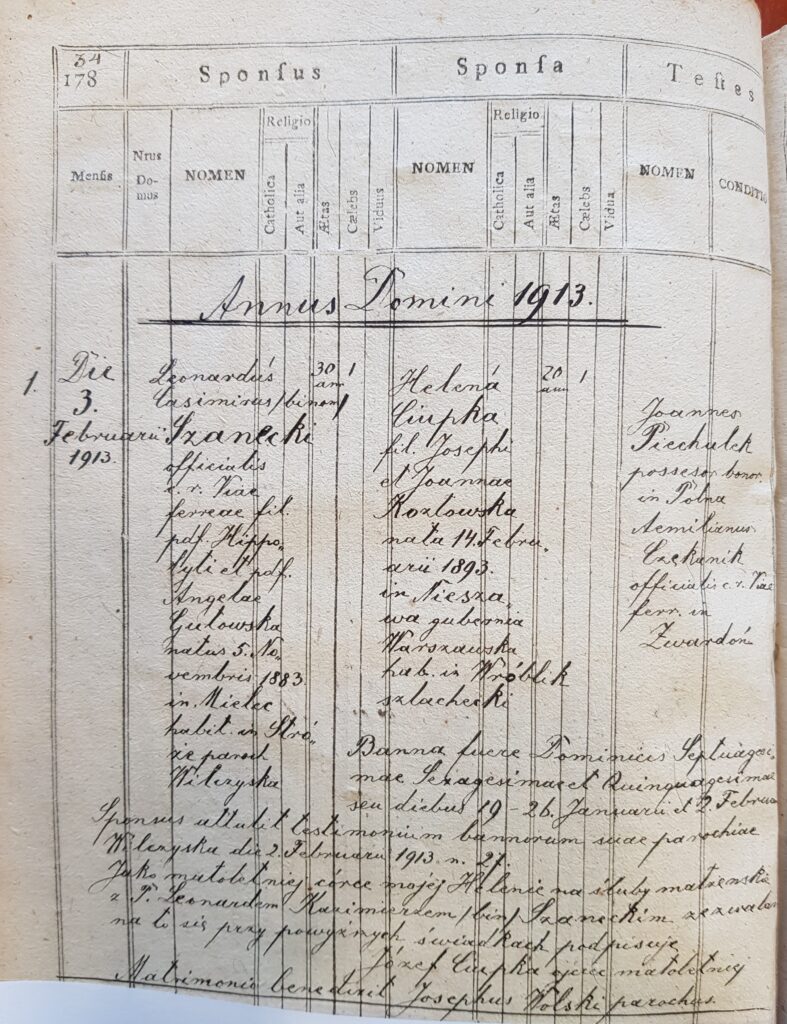 34
178
Sponsus
Sponsa
Testes
Mensis
Nrus Do-mus
NOMEN
Religio
Catholica
Aut alia
Ætas
Cælebs
Viduus
NOMEN
Religio
Catholica
Aut alia
Ætas
Cælebs
Vidua
NOMEN
CONDITIO
Annus Domini 1913.
1.
Die
3.
Februarii
1913.
Leonardus
Casimirus /binom/
Szanecki
officialis
c. r. Viae
ferreae fil.
pdf. Hippo„
lyti et pdf.
Angelae
Gutowska
natus 5. No„
vembris 1883.
in Mielec
habit. in Stró„
że paroch
Wilczyska
30
ann
Helena
Ciupka
fil. Josephi
et Joannae
Kozłowska
nata 14. Febru„
arii 1893.
in Niesza„
wa gubernia
Warszawska
hab. in Wróblik
szlachecki
20
ann
Joannes
Piechulek
possesor bonor.
in Polna
Aemilianus
Czekanik
officialis c. r. Viae
ferr. in
Zwardoń
Banna fuere Dominicis Septuagesi„
mae Sexagesimae et Quinquagesimae
seu diebus 19 - 26. Januarii et 2. Februarii
Sponsus attulit testimonium bannorum suae parochiae
Wilczyska die 2. Februarii 1913. n. 27.
Jako małoletniej córce mojej Helenie na śluby małżeńskie
z P. Leonardem Kazimierzem /bin/ Szaneckim zezwalam
na to się przy powyższych świadkach podpisuję
Józef Ciupka ojciec małoletniej
Matrimonio benedixit Josephus Wolski parochus.